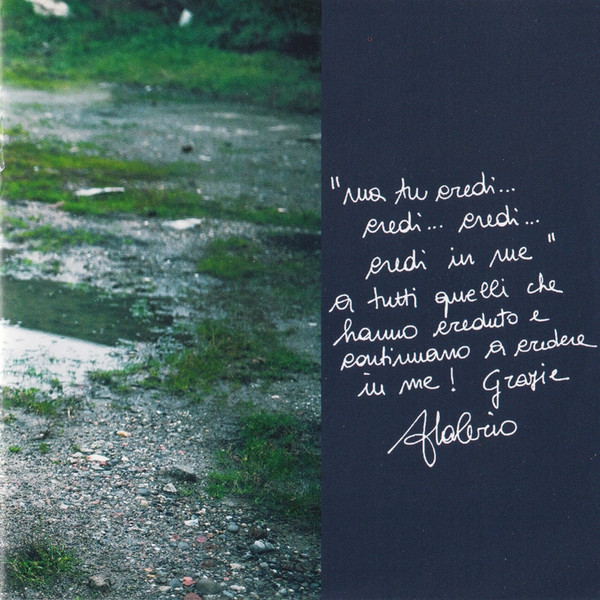 "ma tu credi...
credi... credi...
credi in me"
a tutti quelli che
hanno creduto e
continuano a credere
in me! Grazie
Valerio